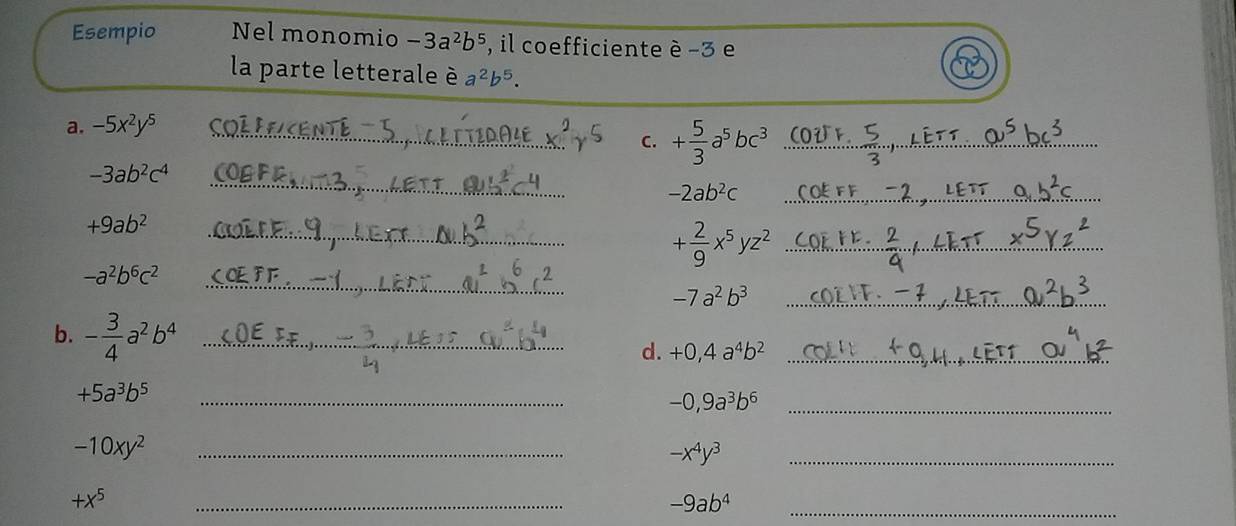 Esempio Nel monomio −3a²b⁵, il coefficiente è −3 e
la parte letterale è a²b⁵.
a. −5x²y⁵ COEFFICENTE −5, LETTERALE x²y⁵
−3ab²c⁴ COEFF. −3, LETT ab²c⁴
+9ab² COEFF. 9, LETT ab²
−a²b⁶c² COEFF. −1, LETT a²b⁶c²
b. −3/4 a²b⁴ COEFF, −3/4, LETT a²b⁴
+5a³b⁵
−10xy²
+x⁵
c. +5/3 a⁵bc³ COEFF. 5/3, LETT. a⁵bc³
−2ab²c COEFF −2, LETT ab²c
+2/9 x⁵yz² COEFF. 2/9, LETT x⁵yz²
−7a²b³ COEFF. −7, LETT a²b³
d. +0,4 a⁴b² COEFF +0,4, LETT a⁴b²
−0,9a³b⁶
−x⁴y³
−9ab⁴